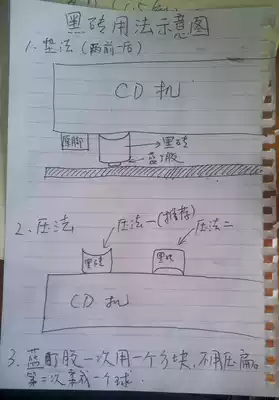 黑砖用法示意图
1、垫法（两前一后）
CD机
原脚
黑砖
蓝丁胶
2、压法
压法一(推荐)
压法二
黑砖
黑砖
CD机
3、蓝酊胶一次用一个方块，不用压扁。
第二次弄成一个球.